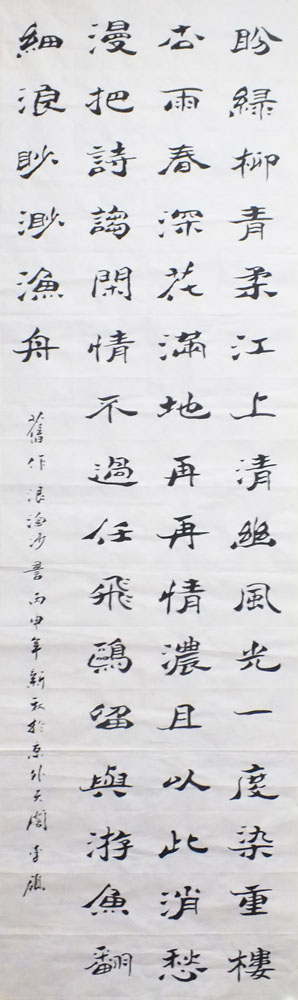 盼緑柳青柔江上清幽風光一度染重樓
杏雨春深花滿地再再情濃且以此消愁
漫把詩謅閑情不過任飛鷗留與游魚翻
細浪眇渺漁舟
舊作浪淘沙書丙申年新秋於京外天閣李